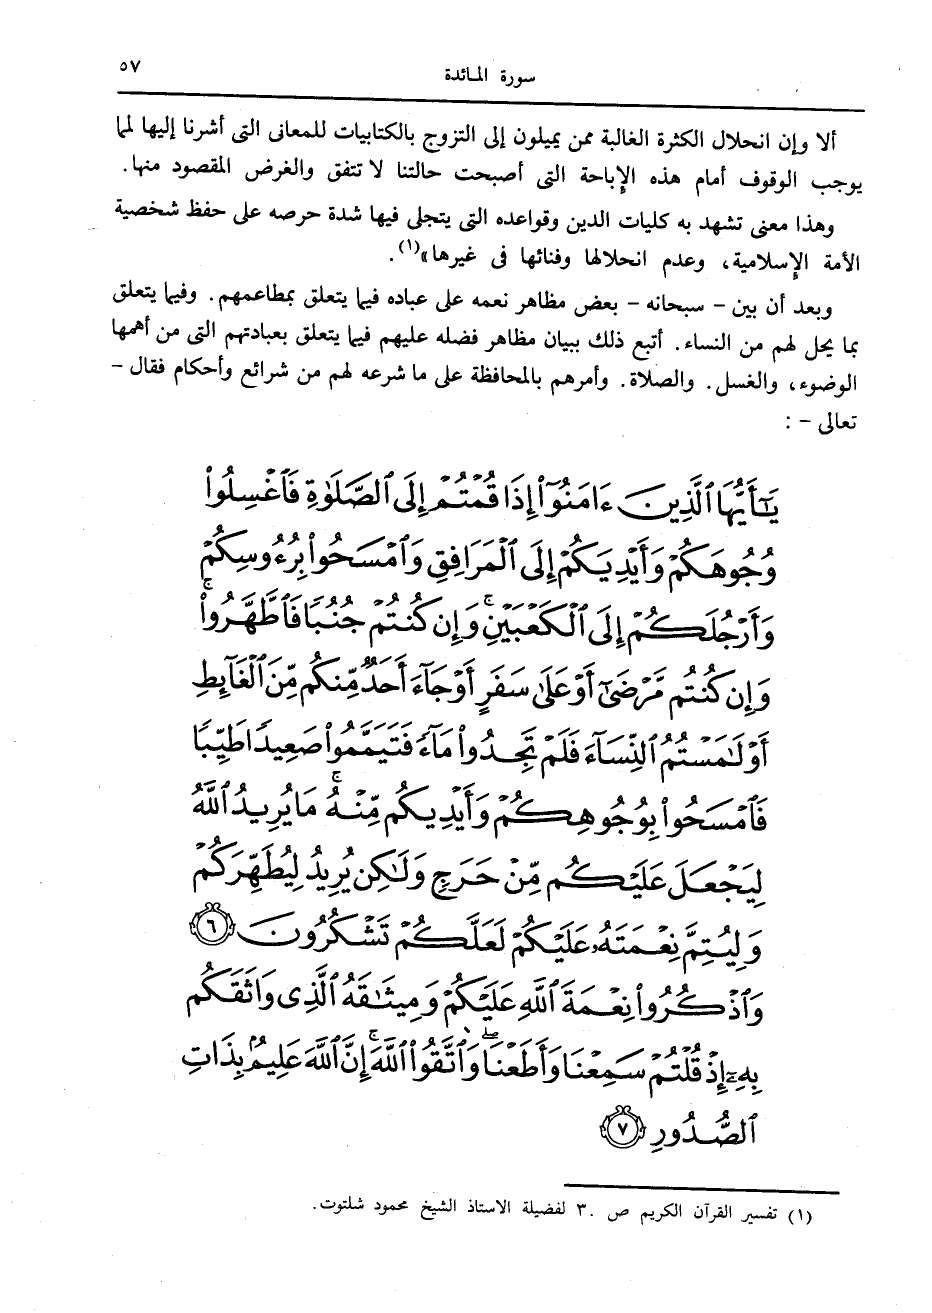 سورة المائدة ٥٧
ألا وإن انحلال الكثرة الغالبة ممن يميلون إلى التزوج بالكتابيات للمعانى التى أشرنا إليها لما
يوجب الوقوف أمام هذه الإباحة التى أصبحت حالتنا لا تتفق والغرض المقصود منها.
وهذا معنى تشهد به كليات الدين وقواعده التى يتجلى فيها شدة حرصه على حفظ شخصية
الأمة الإسلامية، وعدم انحلالها وفنائها فى غيرها»(١).
وبعد أن بين - سبحانه - بعض مظاهر نعمه على عباده فيما يتعلق بمطاعمهم. وفيما يتعلق
بما يحل لهم من النساء. أتبع ذلك ببيان مظاهر فضله عليهم فيما يتعلق بعبادتهم التى من أهمها
الوضوء، والغسل. والصلاة. وأمرهم بالمحافظة على ما شرعه لهم من شرائع وأحكام فقال -
تعالى - :
يَٰٓأَيُّهَا ٱلَّذِينَ ءَامَنُوٓا۟ إِذَا قُمْتُمْ إِلَى ٱلصَّلَوٰةِ فَٱغْسِلُوا۟
وُجُوهَكُمْ وَأَيْدِيَكُمْ إِلَى ٱلْمَرَافِقِ وَٱمْسَحُوا۟ بِرُءُوسِكُمْ
وَأَرْجُلَكُمْ إِلَى ٱلْكَعْبَيْنِ ۚ وَإِن كُنتُمْ جُنُبًا فَٱطَّهَّرُوا۟ ۚ
وَإِن كُنتُم مَّرْضَىٰٓ أَوْ عَلَىٰ سَفَرٍ أَوْ جَآءَ أَحَدٌ مِّنكُم مِّنَ ٱلْغَآئِطِ
أَوْ لَٰمَسْتُمُ ٱلنِّسَآءَ فَلَمْ تَجِدُوا۟ مَآءً فَتَيَمَّمُوا۟ صَعِيدًا طَيِّبًا
فَٱمْسَحُوا۟ بِوُجُوهِكُمْ وَأَيْدِيكُم مِّنْهُ ۚ مَا يُرِيدُ ٱللَّهُ
لِيَجْعَلَ عَلَيْكُم مِّنْ حَرَجٍ وَلَٰكِن يُرِيدُ لِيُطَهِّرَكُمْ
وَلِيُتِمَّ نِعْمَتَهُۥ عَلَيْكُمْ لَعَلَّكُمْ تَشْكُرُونَ ٦
وَٱذْكُرُوا۟ نِعْمَةَ ٱللَّهِ عَلَيْكُمْ وَمِيثَٰقَهُ ٱلَّذِى وَاثَقَكُم
بِهِۦٓ إِذْ قُلْتُمْ سَمِعْنَا وَأَطَعْنَا ۖ وَٱتَّقُوا۟ ٱللَّهَ ۚ إِنَّ ٱللَّهَ عَلِيمٌۢ بِذَاتِ
ٱلصُّدُورِ ٧
(١) تفسير القرآن الكريم ص ٣٠٠ لفضيلة الاستاذ الشيخ محمود شلتوت.